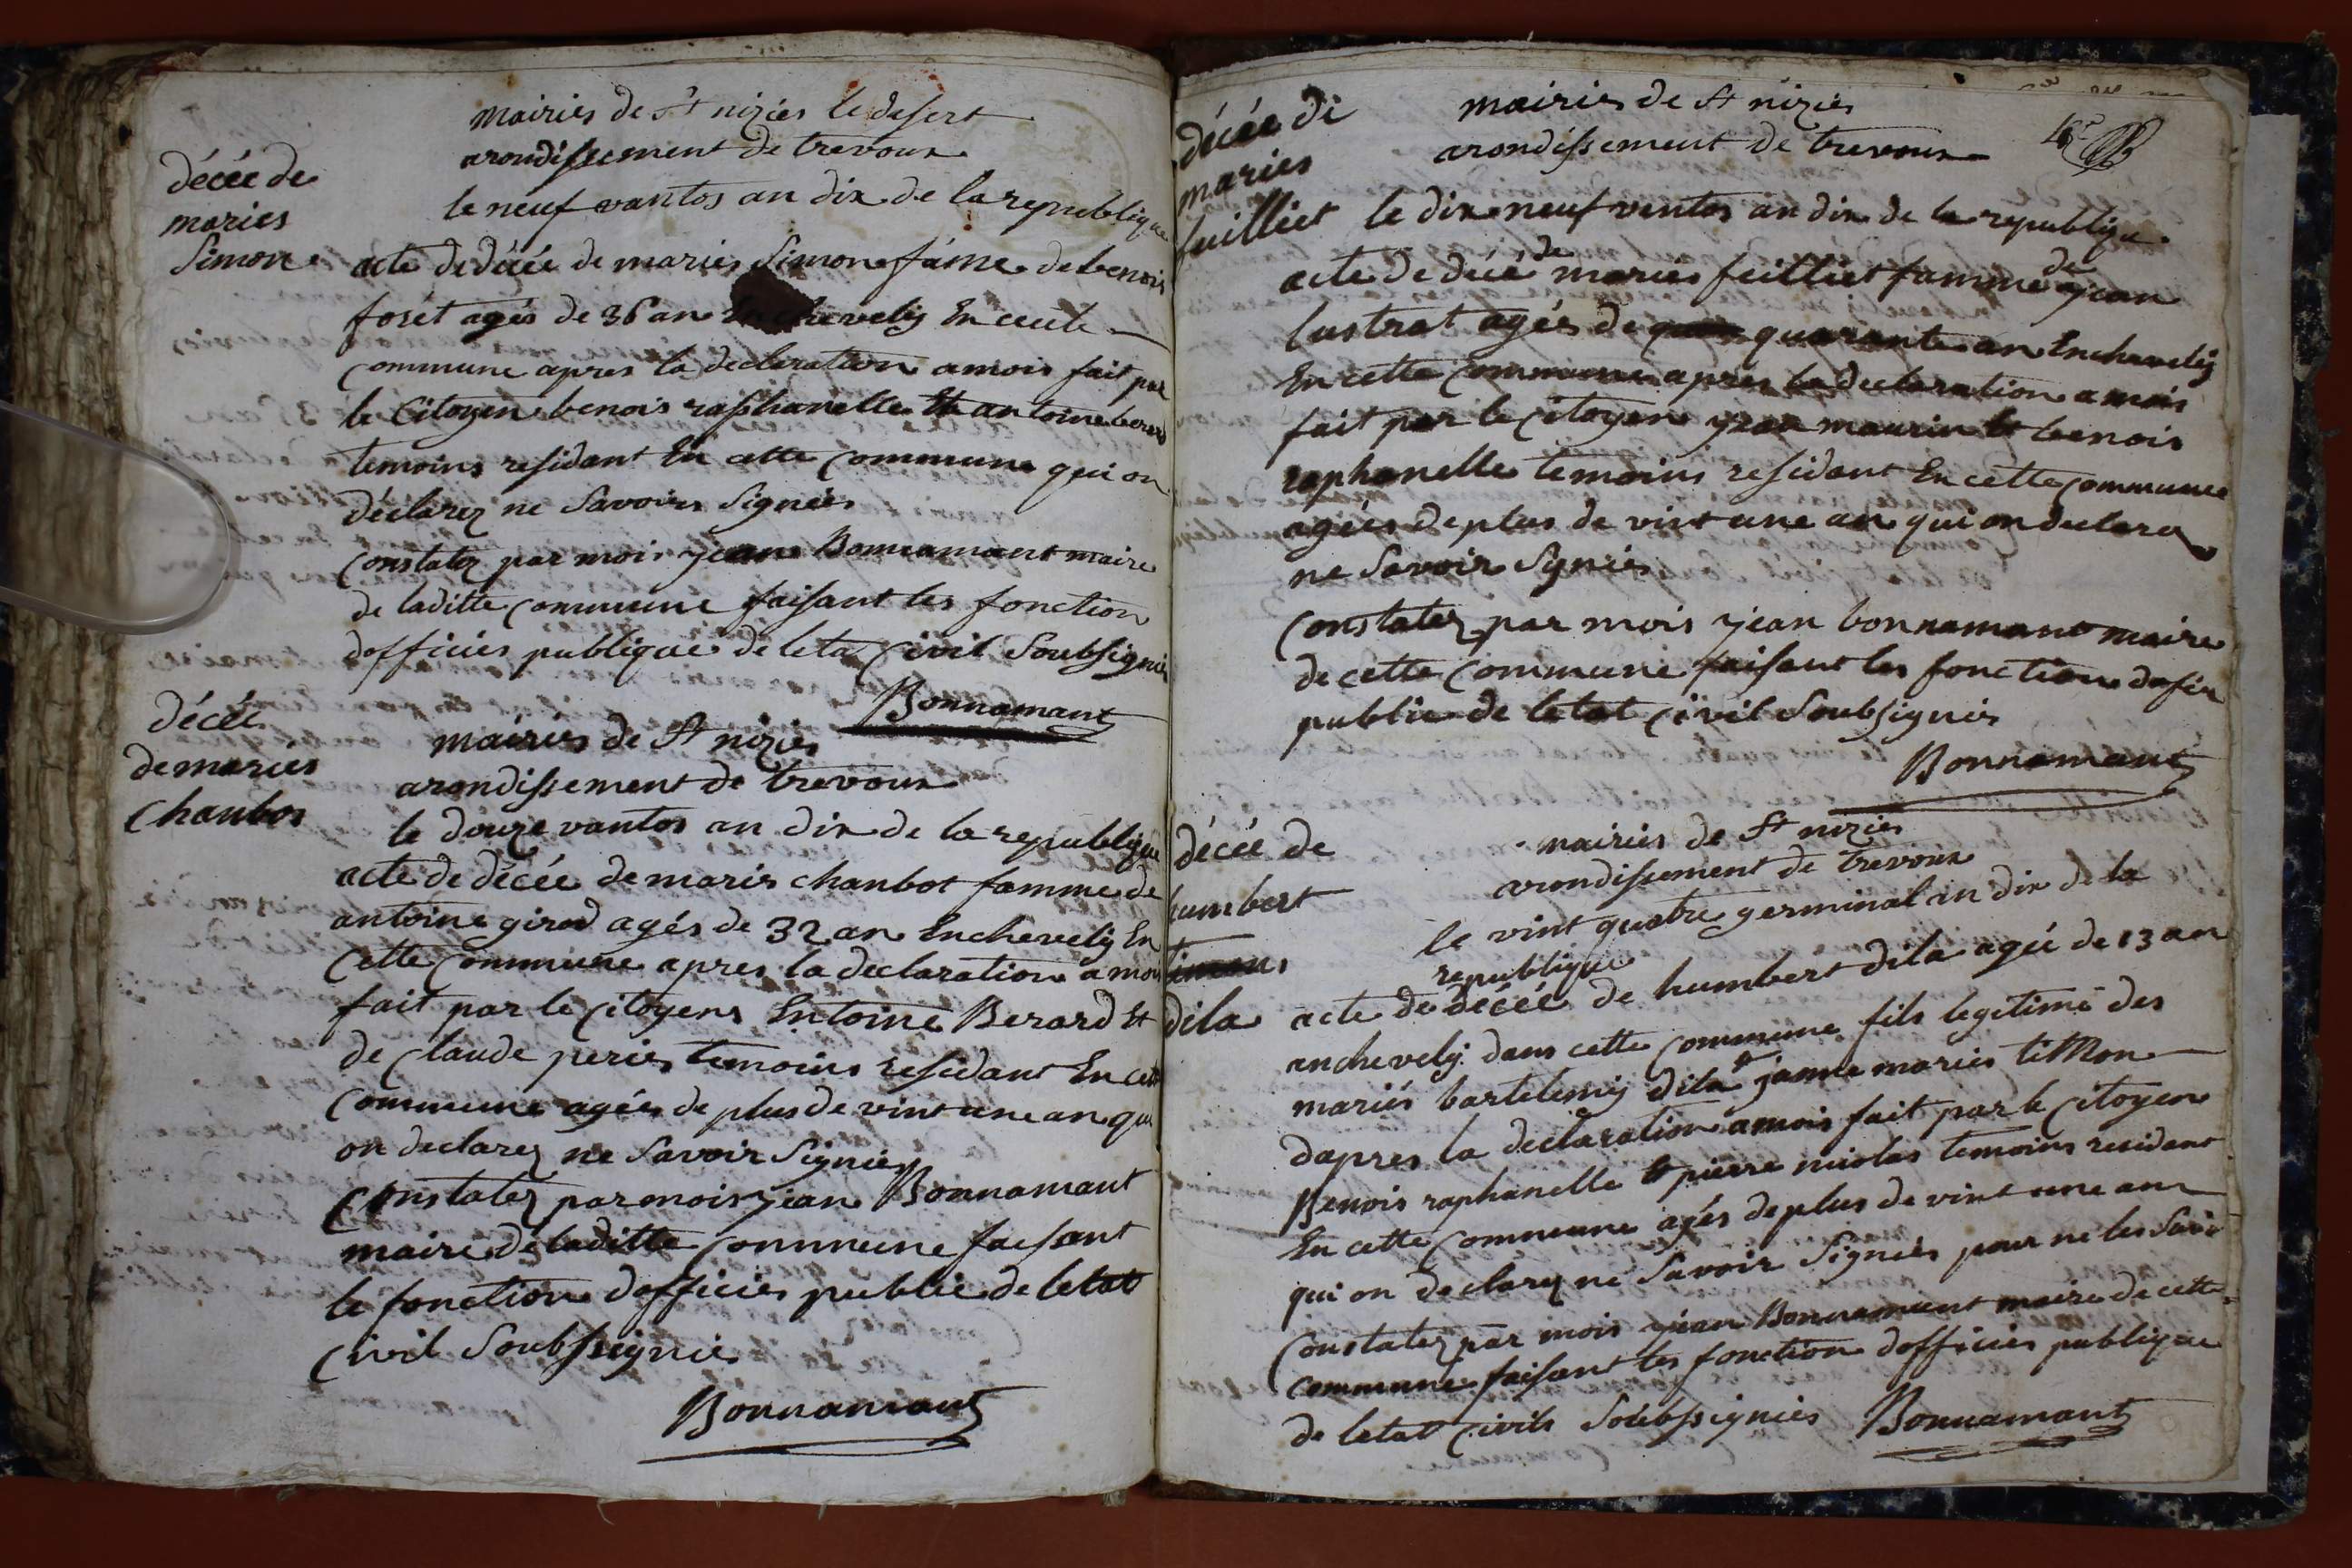 mairies de St nizies le desert
arondissement de trevoux
le neuf vantos an dix de la republique
décée de
maries
Simon
acte de décée de maries Simon fáme de benois
forét agés de 36 an Enchevelis En cecte
commune apres la declaration amois fait par
le Citoyen benois raphanelle Et antoine berard
temoins residant En cette Commune qui on
déclarez ne Savoirs Signiés
Constatez par mois jean Bonnamant maire
de laditte Commune faisant les fonction
dofficies publique de leta Civil Soubsigniés
Bonnamant
décée
de maries
Chanbos
mairies de St nizies
arondissement de trevoux
le douze vantos an dix de la republique
acte de décée de maries chanbot famme de
antoine girod agés de 32 an Enchevelis En
Cette Commune apres la declaration a mois
fait par le Citoyens Entoine Berard Et
de Claude peries temoins residant En cette
Commune agées de plus de vint une an qui
on declarez ne Savoir Signiés
Constatez par mois jean Bonnamant
maire de laditte Commune faisant
le fonction dofficies public de letat
Civil Soubssignies
Bonnamant
décée di
maries
fuilliet
mairies de St nizies
arondissement de trevoux
le dix neuf ventos an dix de la republique
acte de décé de maries feilliet famme de jean
lustrat agés de quarante an Enchevelis
En cette Commune apres la declaration a mois
fait par le Citoyen jean maurin Et benois
raphanelle temoins residant En cette Commune
agées de plus de vint une an qui on declarez
ne Savoir Signies
Constatez par mois jean bonnamant maire
de cette Commune faisant les fonction dofis
public de letat Civil Soubsignies
Bonnamant
décée de
humbert
dila
mairies de St nizies
arondissement de trevoux
le vint quatre germinal an dix de la
republique
acte de décée de humbert dila agée de 13 an
anchevelis dans cette Commune fils legitime des
mariés bartelemis dila & janne maries tithon
dapres la declaration a mois fait par le Citoyen
Benois raphanelle Et pierre nicolas temoins residant
En cette Commune agés de plus de vint une an
qui on declarez ne Savoir Signies pour ne les Savoir
Constatez par mois jean Bonnamant maire de cette
Commune faisant les fonction dofficies publique
de letat Civils Soubssignies Bonnamant